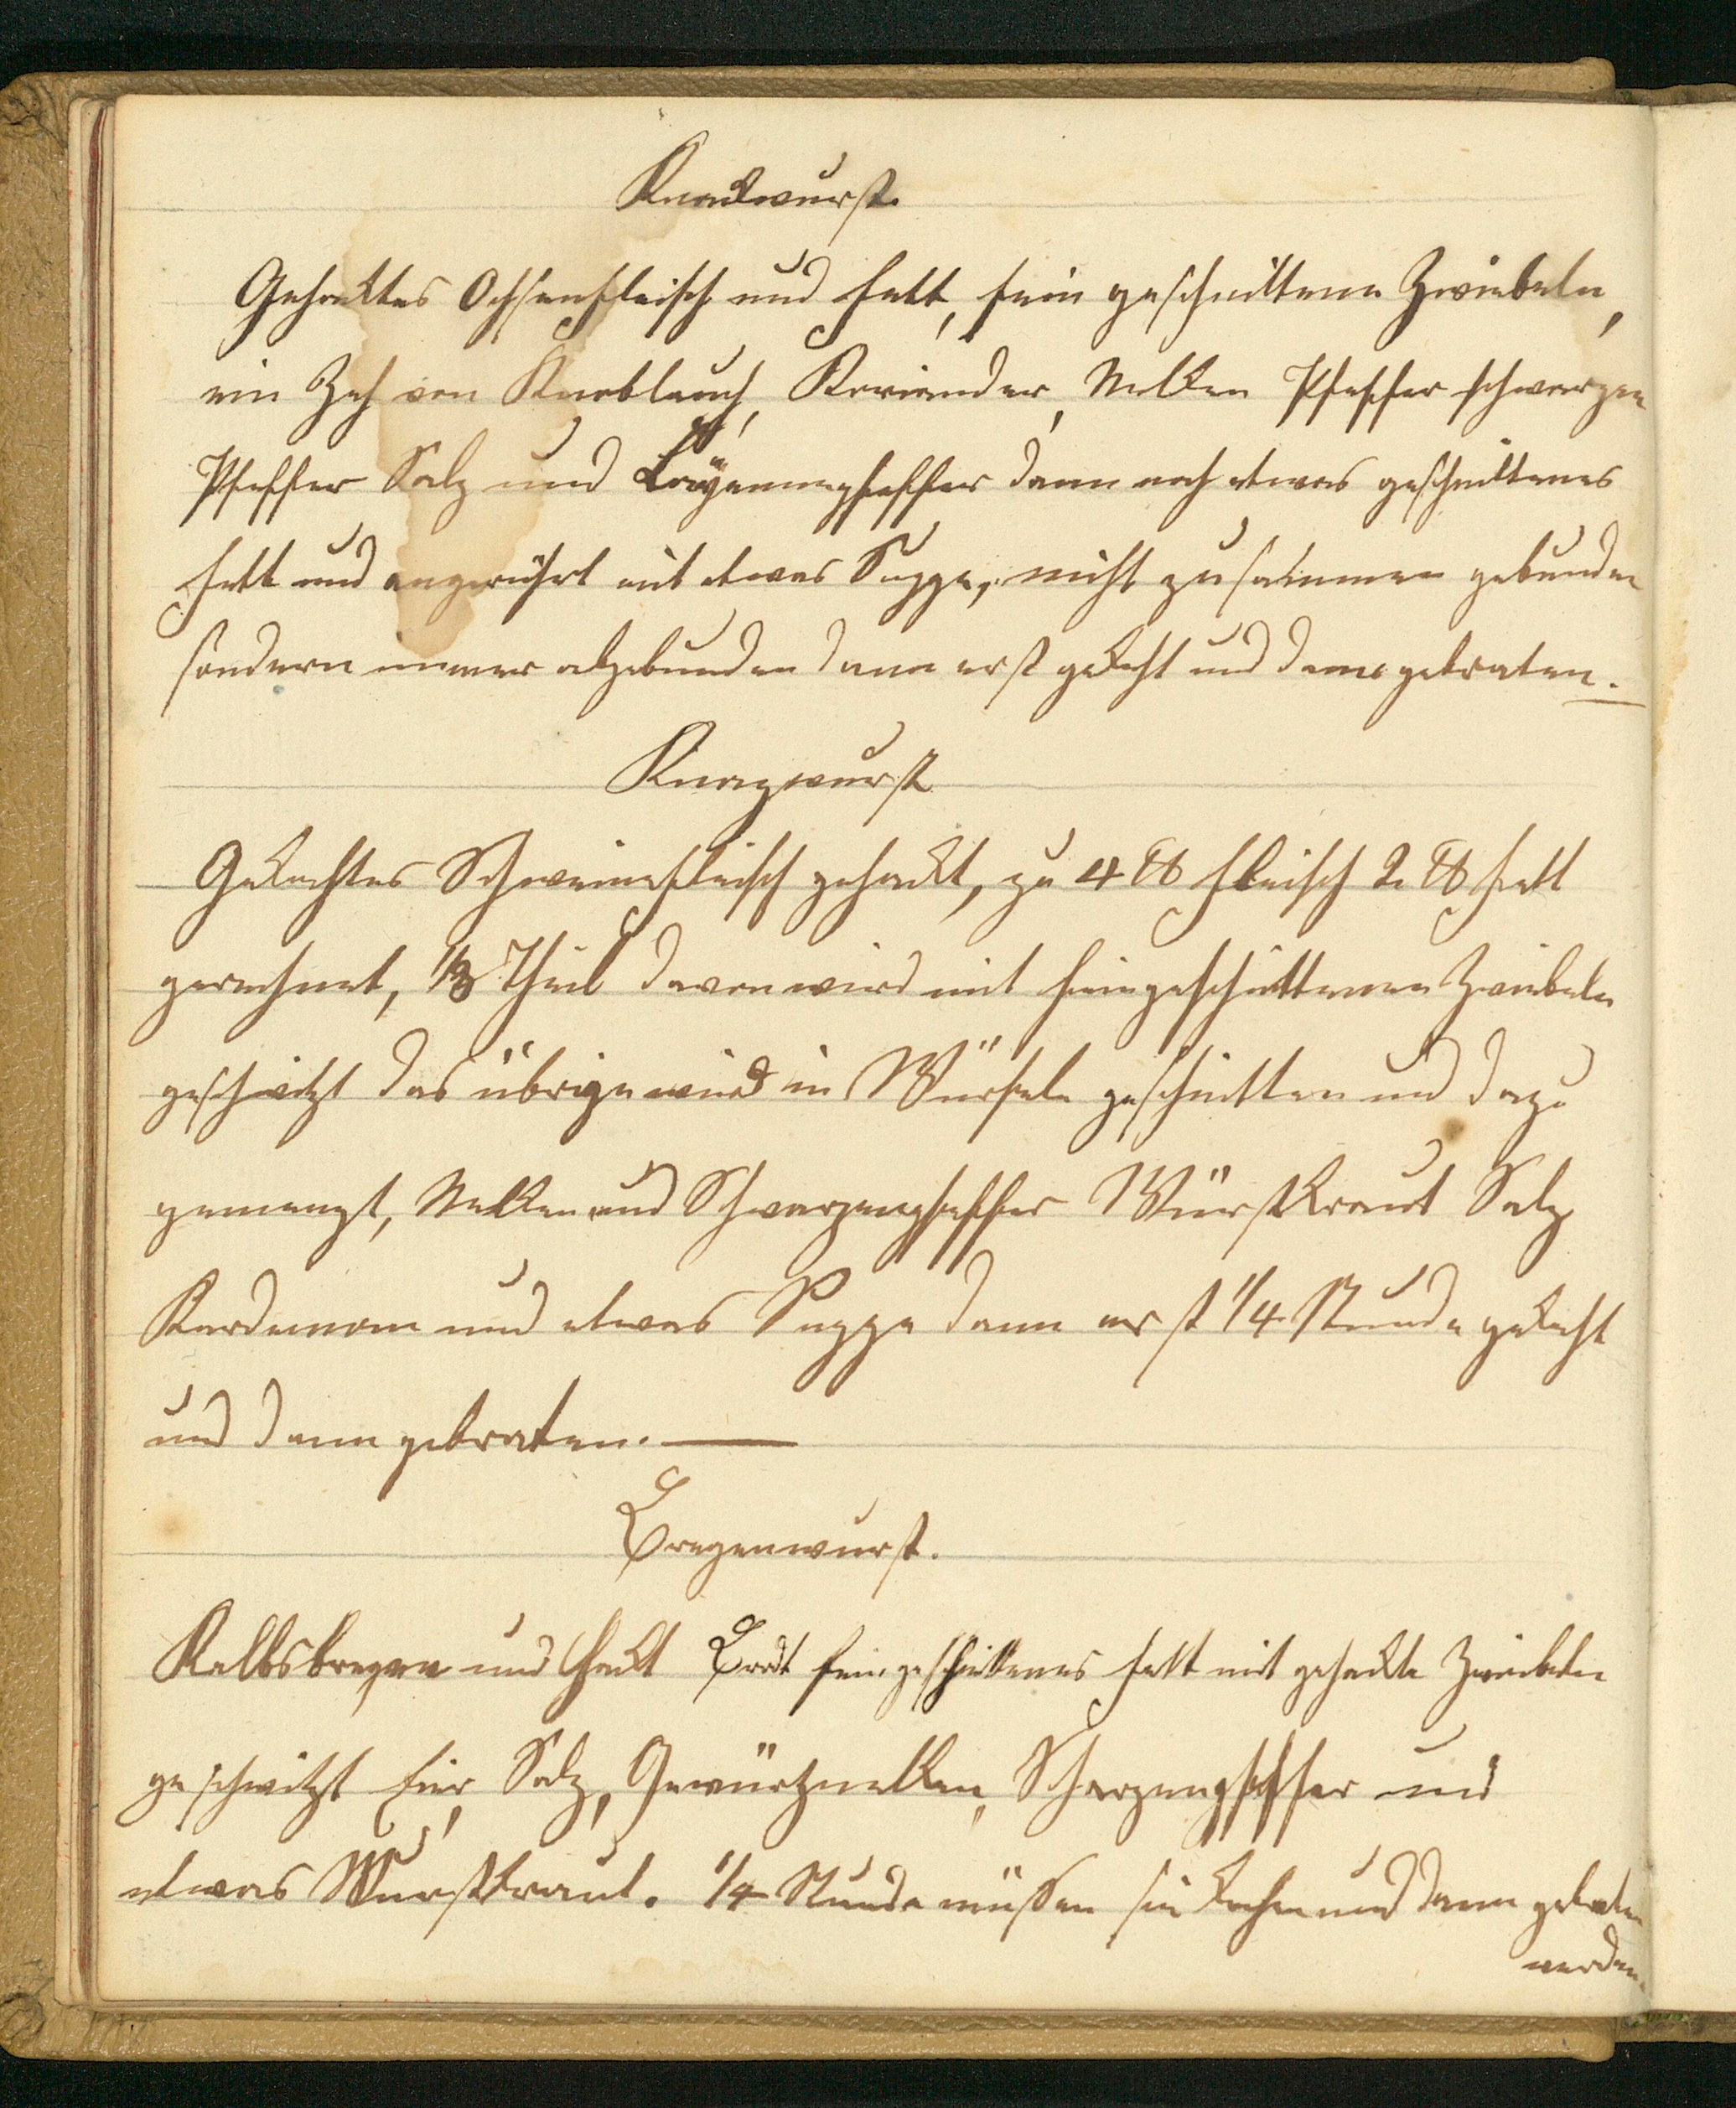 Knackwurst.
Gehacktes Ochsenfleisch und Fett, fein geschnittene Zwiebeln,
ein Zeh von Knoblauch, Koriander, Nelken Pfeffer schwarzen
Pfeffer Salz und Cayennepfeffer dann noch etwas geschnittenes
Fett und angerührt mit etwas Suppe, nicht zusammen gebunden
sondern immer abgebunden dann erst gekocht und dann gebraten.
Knapwurst
Gekochtes Schweinefleisch gehackt, zu 4 ℔ Fleisch 2 ℔ Fett
gerechnet, 1/3 Theil davon wird mit feingeschnittenen Zwiebeln
geschwitzt das übrige wird in Würfeln geschnitten und dazu
gemengt, Nelken und Schwarzenpfeffer Wurstkraut Salz
Kardemom und etwas Suppe dann erst 1/4 Stunde gekocht
und dann gebraten.
Bregenwurst.
Kalbsbregen und Brodt feingeschnittenes Fett mit gehackte Zwiebeln
geschwitzt Eier, Salz, Gewürtznelken, Scharzenpfeffer und
etwas Wurstkraut. 1/4 Stunde müssen sie kochen und dann gebraten
werden.